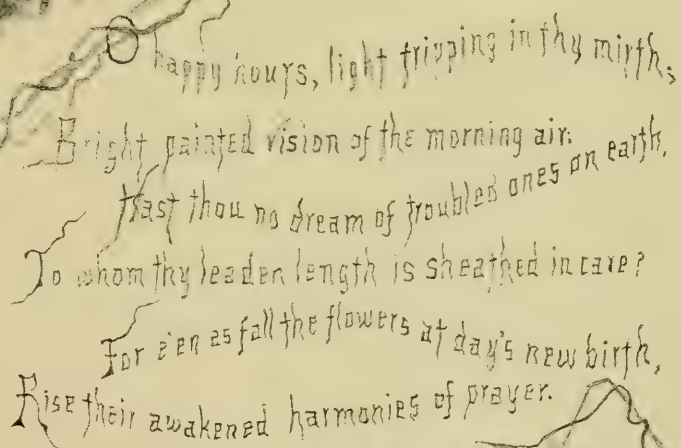 O happy hours, light tripping in thy mirth,
Bright painted vision of the morning air:
Hast thou no dream of troubled ones on earth,
To whom thy leaden length is sheathed in care?
For e'en as fall the flowers at day's new birth,
Rise their awakened harmonies of prayer.